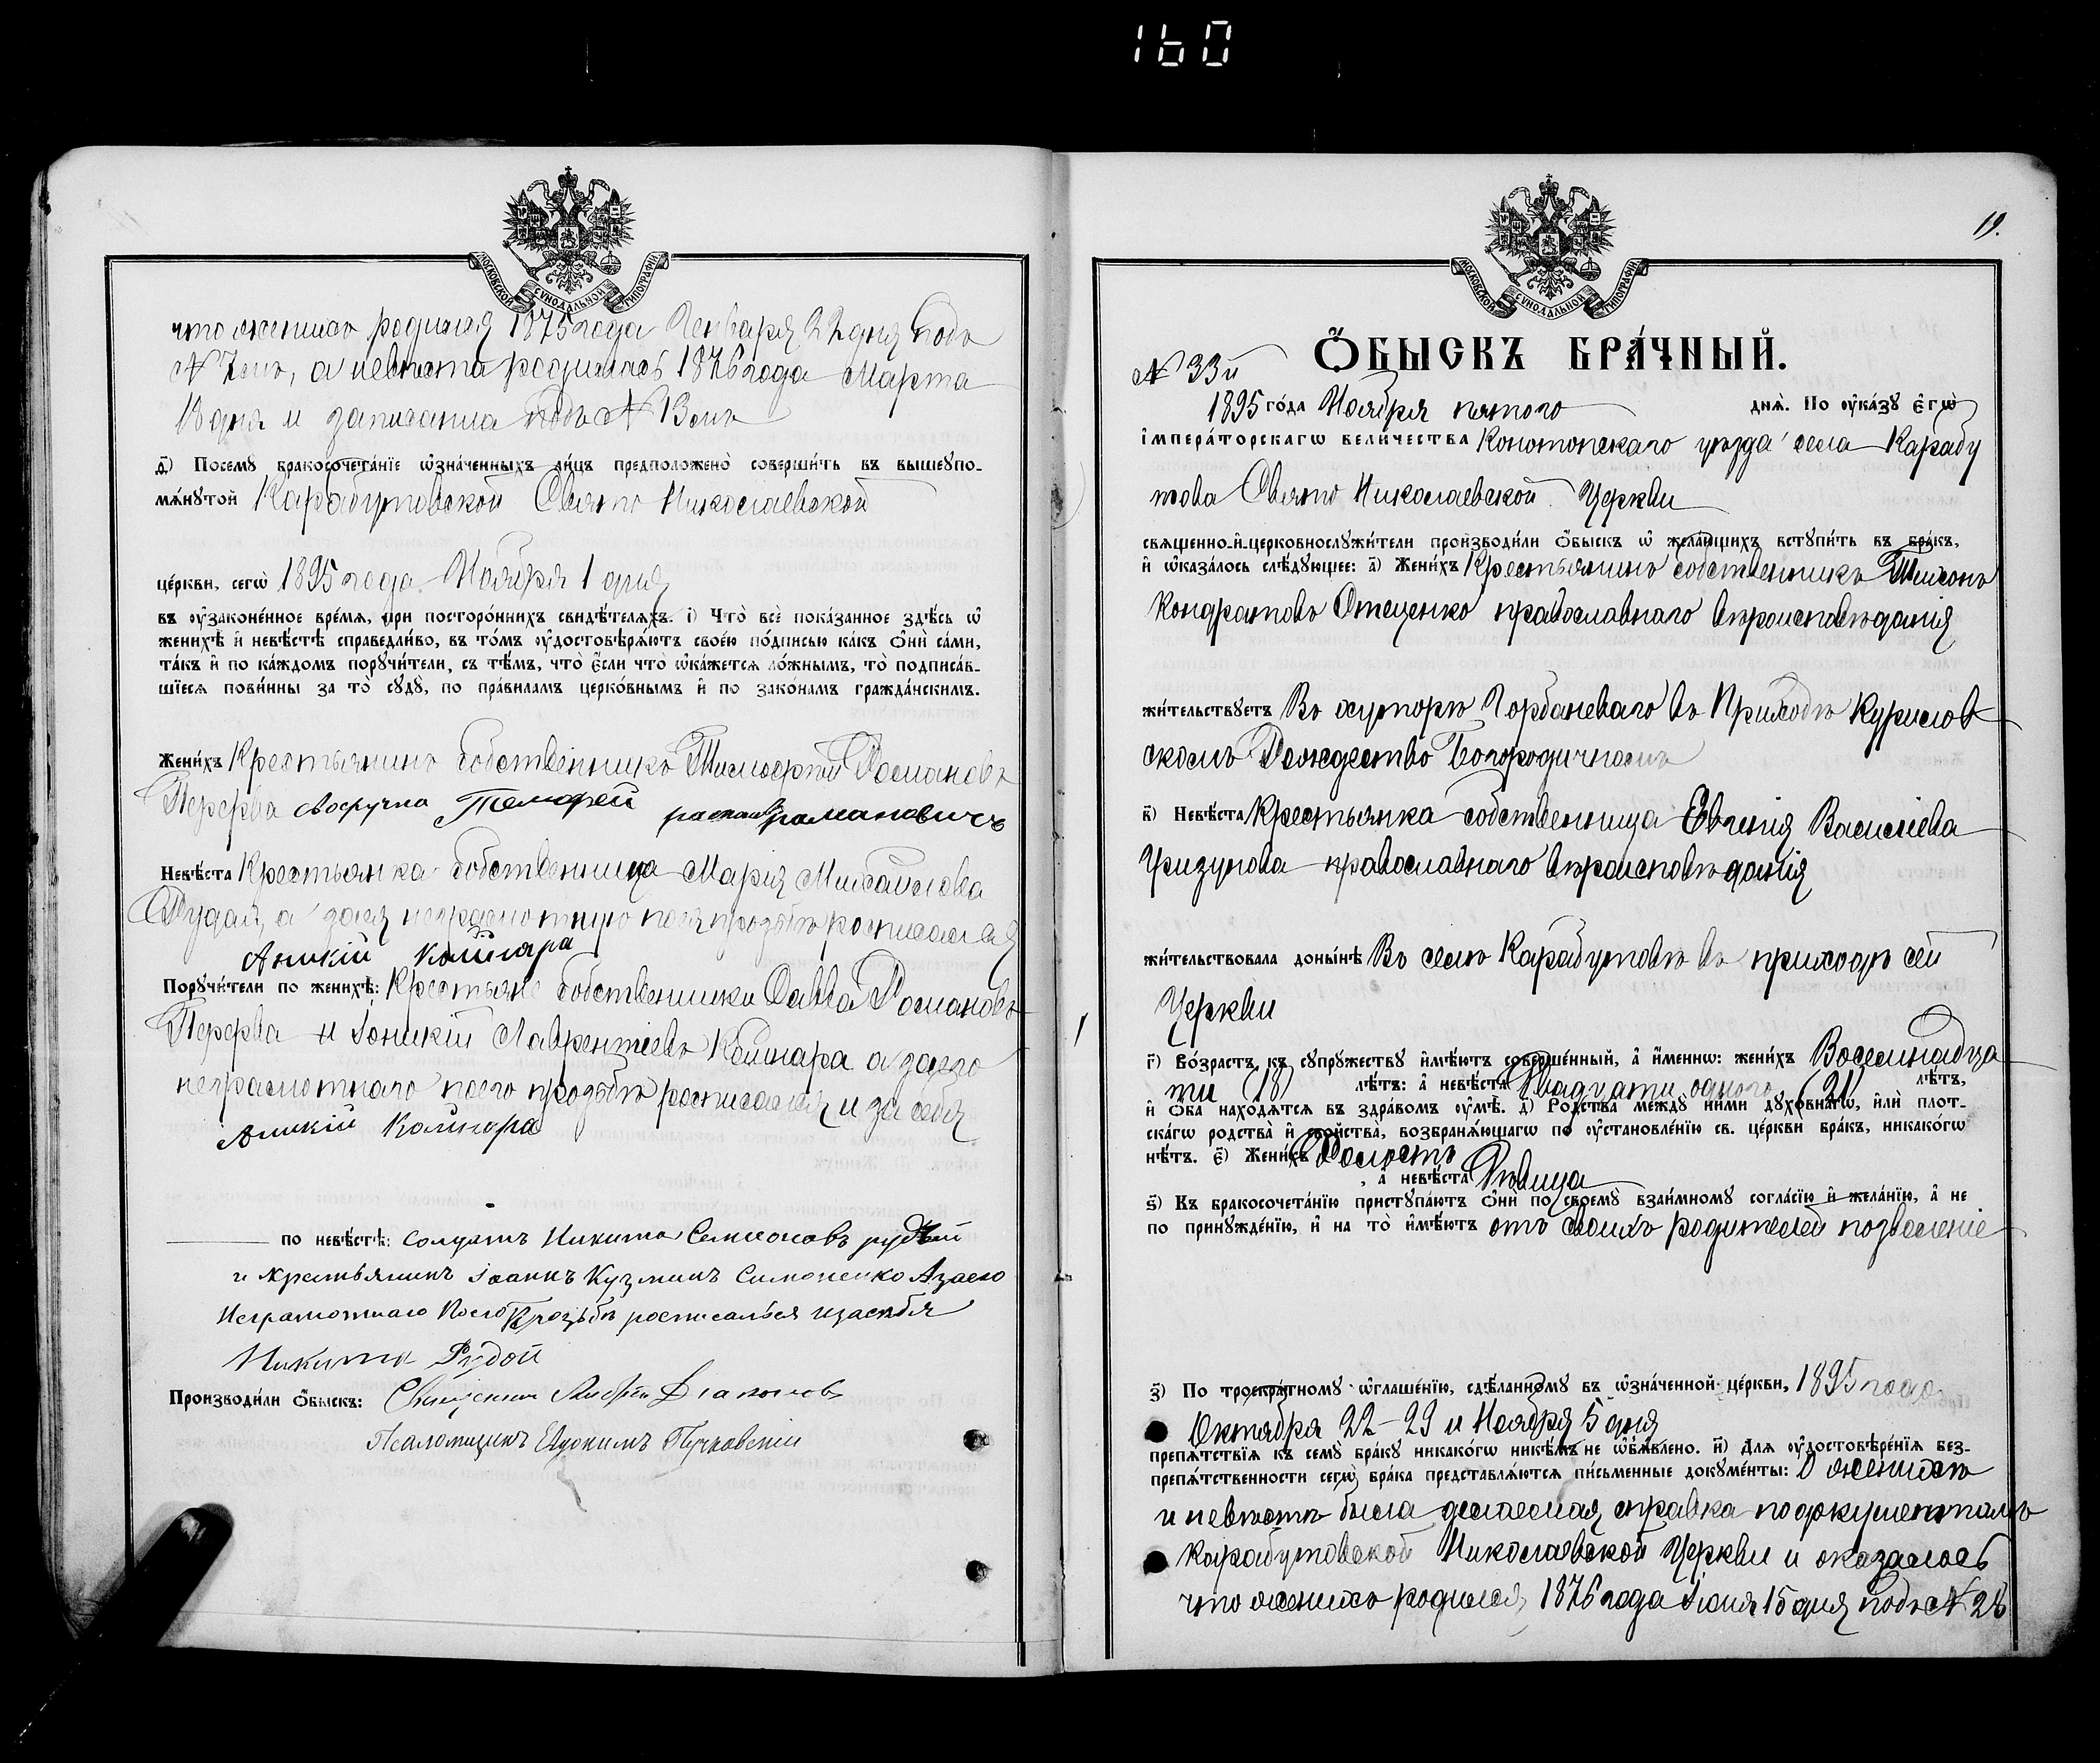 160
МОСКОВСКОЙ СѴНОДАЛЬНОЙ ТИПОГРАФІИ
что женихъ родился 1875 года Генваря 22 дня подъ
№ 7емъ, а невѣста родилась 1876 года Марта
18 дня и записанна подъ № 13емъ
д҃) Посемꙋ бракосочета́нїе ѡ҆зна́ченныхъ ли́цъ предположено̀ соверши́ть въ вышеꙋпо-
мѧ́нꙋтой Карабутовской Свято Николаевской
це́ркви, сегѡ̀ 1895 года Ноября 1 дня
въ ᲂу҆зако́ненное вре́мѧ, при посторо́ннихъ свидѣ́телѧхъ. і҃) Что̀ всѐ пока́занное здѣ́сь ѡ҆
женихѣ̀ и҆ невѣ́стѣ справедли́во, въ то́мъ ᲂу҆достовѣрѧ́ютъ свое́ю по́дписью ка́къ ѻ҆нѝ са́ми,
та́къ и҆ по ка́ждомъ порꙋчи́тели, съ тѣ́мъ, что̀ є҆́сли что̀ ѡ҆ка́жетсѧ ло́жнымъ, то̀ подписа́в-
шїесѧ пови́нны за то̀ сꙋдꙋ̀, по пра́виламъ церко́внымъ и҆ по зако́намъ гражда́нскимъ.
Жени́хъ Крестьянинъ Собственникъ Тимофей Романовъ
Перерва Тимофей романовичъ
Невѣ́ста Крестьянка Собственница Марія Михайлова
Рудая, а за нея неграмотную по ея прозьбѣ росписался
Аникій Коимара
Порꙋчи́тели по женихѣ̀: Крестьяне Собственники Савва Романовъ
Перерва и Іоникій Лаврентіевъ Коимара а за его
неграмотнаго по его прозьбѣ росписался и за себя
Аникій Коимара
по невѣ́стѣ: солдатъ Никита Семіоновъ рудий
и крестьянинъ Іоаннъ Кузминъ Симоненко Азаего
Неграмотнаго Поего Прозьбѣ росписалься изасебя
Никита Рудой
Производи́ли ѻ҆́быскъ: Священник Андрей Діаконовъ
Псаломщикъ Евдокимъ Пучковскій
19.
МОСКОВСКОЙ СѴНОДАЛЬНОЙ ТИПОГРАФІИ
Ѻ҆́БЫСКЪ БРА́ЧНЫЙ.
№ 33й
1895 го́да Ноября пятого днѧ̀. По ᲂу҆ка́зꙋ є҆гѡ̀
і҆мпера́торскагѡ вели́чества Конотопскаго уѣзда села Карабу
това Свято Николаевской Церкви
свѧще́нно-и҆-церковнослꙋжи́тели производи́ли ѻ҆́быскъ ѡ҆ жела́ющихъ встꙋпи́ть въ бра́къ,
и҆ ѡ҆каза́лось слѣ́дꙋющее: а҃) Жени́хъ Крестьянинъ Собственникъ Тихонъ
Кондратовъ Отещенко православнаго вѣроисповѣданія
жи́тельствꙋетъ Въ хуторѣ Горбаневаго въ Приходѣ Курилов
скомъ Рождество Богородичномъ
в҃) Невѣ́ста Крестьянка собственница Евгенія Василіева
Гризунова православнаго вѣроисповѣданія
жи́тельствовала доны́нѣ Въ селѣ Карабутовѣ въ приходѣ сей
Церкви
г҃) Во́зрастъ къ сꙋпрꙋ́жествꙋ и҆мѣ́ютъ соверше́нный, а҆ и҆́меннѡ: жени́хъ Восемнадца
ти (18) лѣ́тъ: а҆ невѣ́ста Двадцати одного (21) лѣ́тъ,
и҆ ѻ҆́ба нахо́дѧтсѧ въ здра́вомъ ᲂу҆мѣ̀. д҃) Родства̀ ме́ждꙋ и҆́ми дꙋхо́внагѡ, и҆лѝ плот-
ска́гѡ родства̀ и҆ сво́йства, возбранѧ́ющагѡ по ᲂу҆становле́нїю св. це́ркви бра́къ, никако́гѡ
нѣ́тъ. є҃) Жени́хъ Холостъ
, а҆ невѣ́ста Дѣвица
ѕ҃) Къ бракосочета́нїю пристꙋпа́ютъ ѻ҆нѝ по своемꙋ̀ взаи́мномꙋ согла́сїю и҆ жела́нїю, а҆ не
по принꙋжде́нїю, и҆ на то̀ и҆мѣ́ютъ отъ своихъ родителей позволеніе
з҃) По троекра́тномꙋ ѡ҆глаше́нїю, сдѣ́ланномꙋ въ ѡ҆зна́ченной це́ркви, 1895 года
Октября 22-29 и Ноября 5 дня
препѧ́тствїѧ къ семꙋ̀ бра́кꙋ никако́гѡ никѣ́мъ не ѡ҆б̾ѧ́влено. и҃) Длѧ ᲂу҆достовѣре́нїѧ без-
препѧ́тственности сегѡ̀ бра́ка представлѧ́ютсѧ пи́сьменные докꙋме́нты: О женихѣ
и невѣстѣ была дѣлаемая справка подокументамъ
Карабутовской Николаевской Церкви и оказалось
что женихъ родился 1876 года Іюня 15 дня подъ № 28